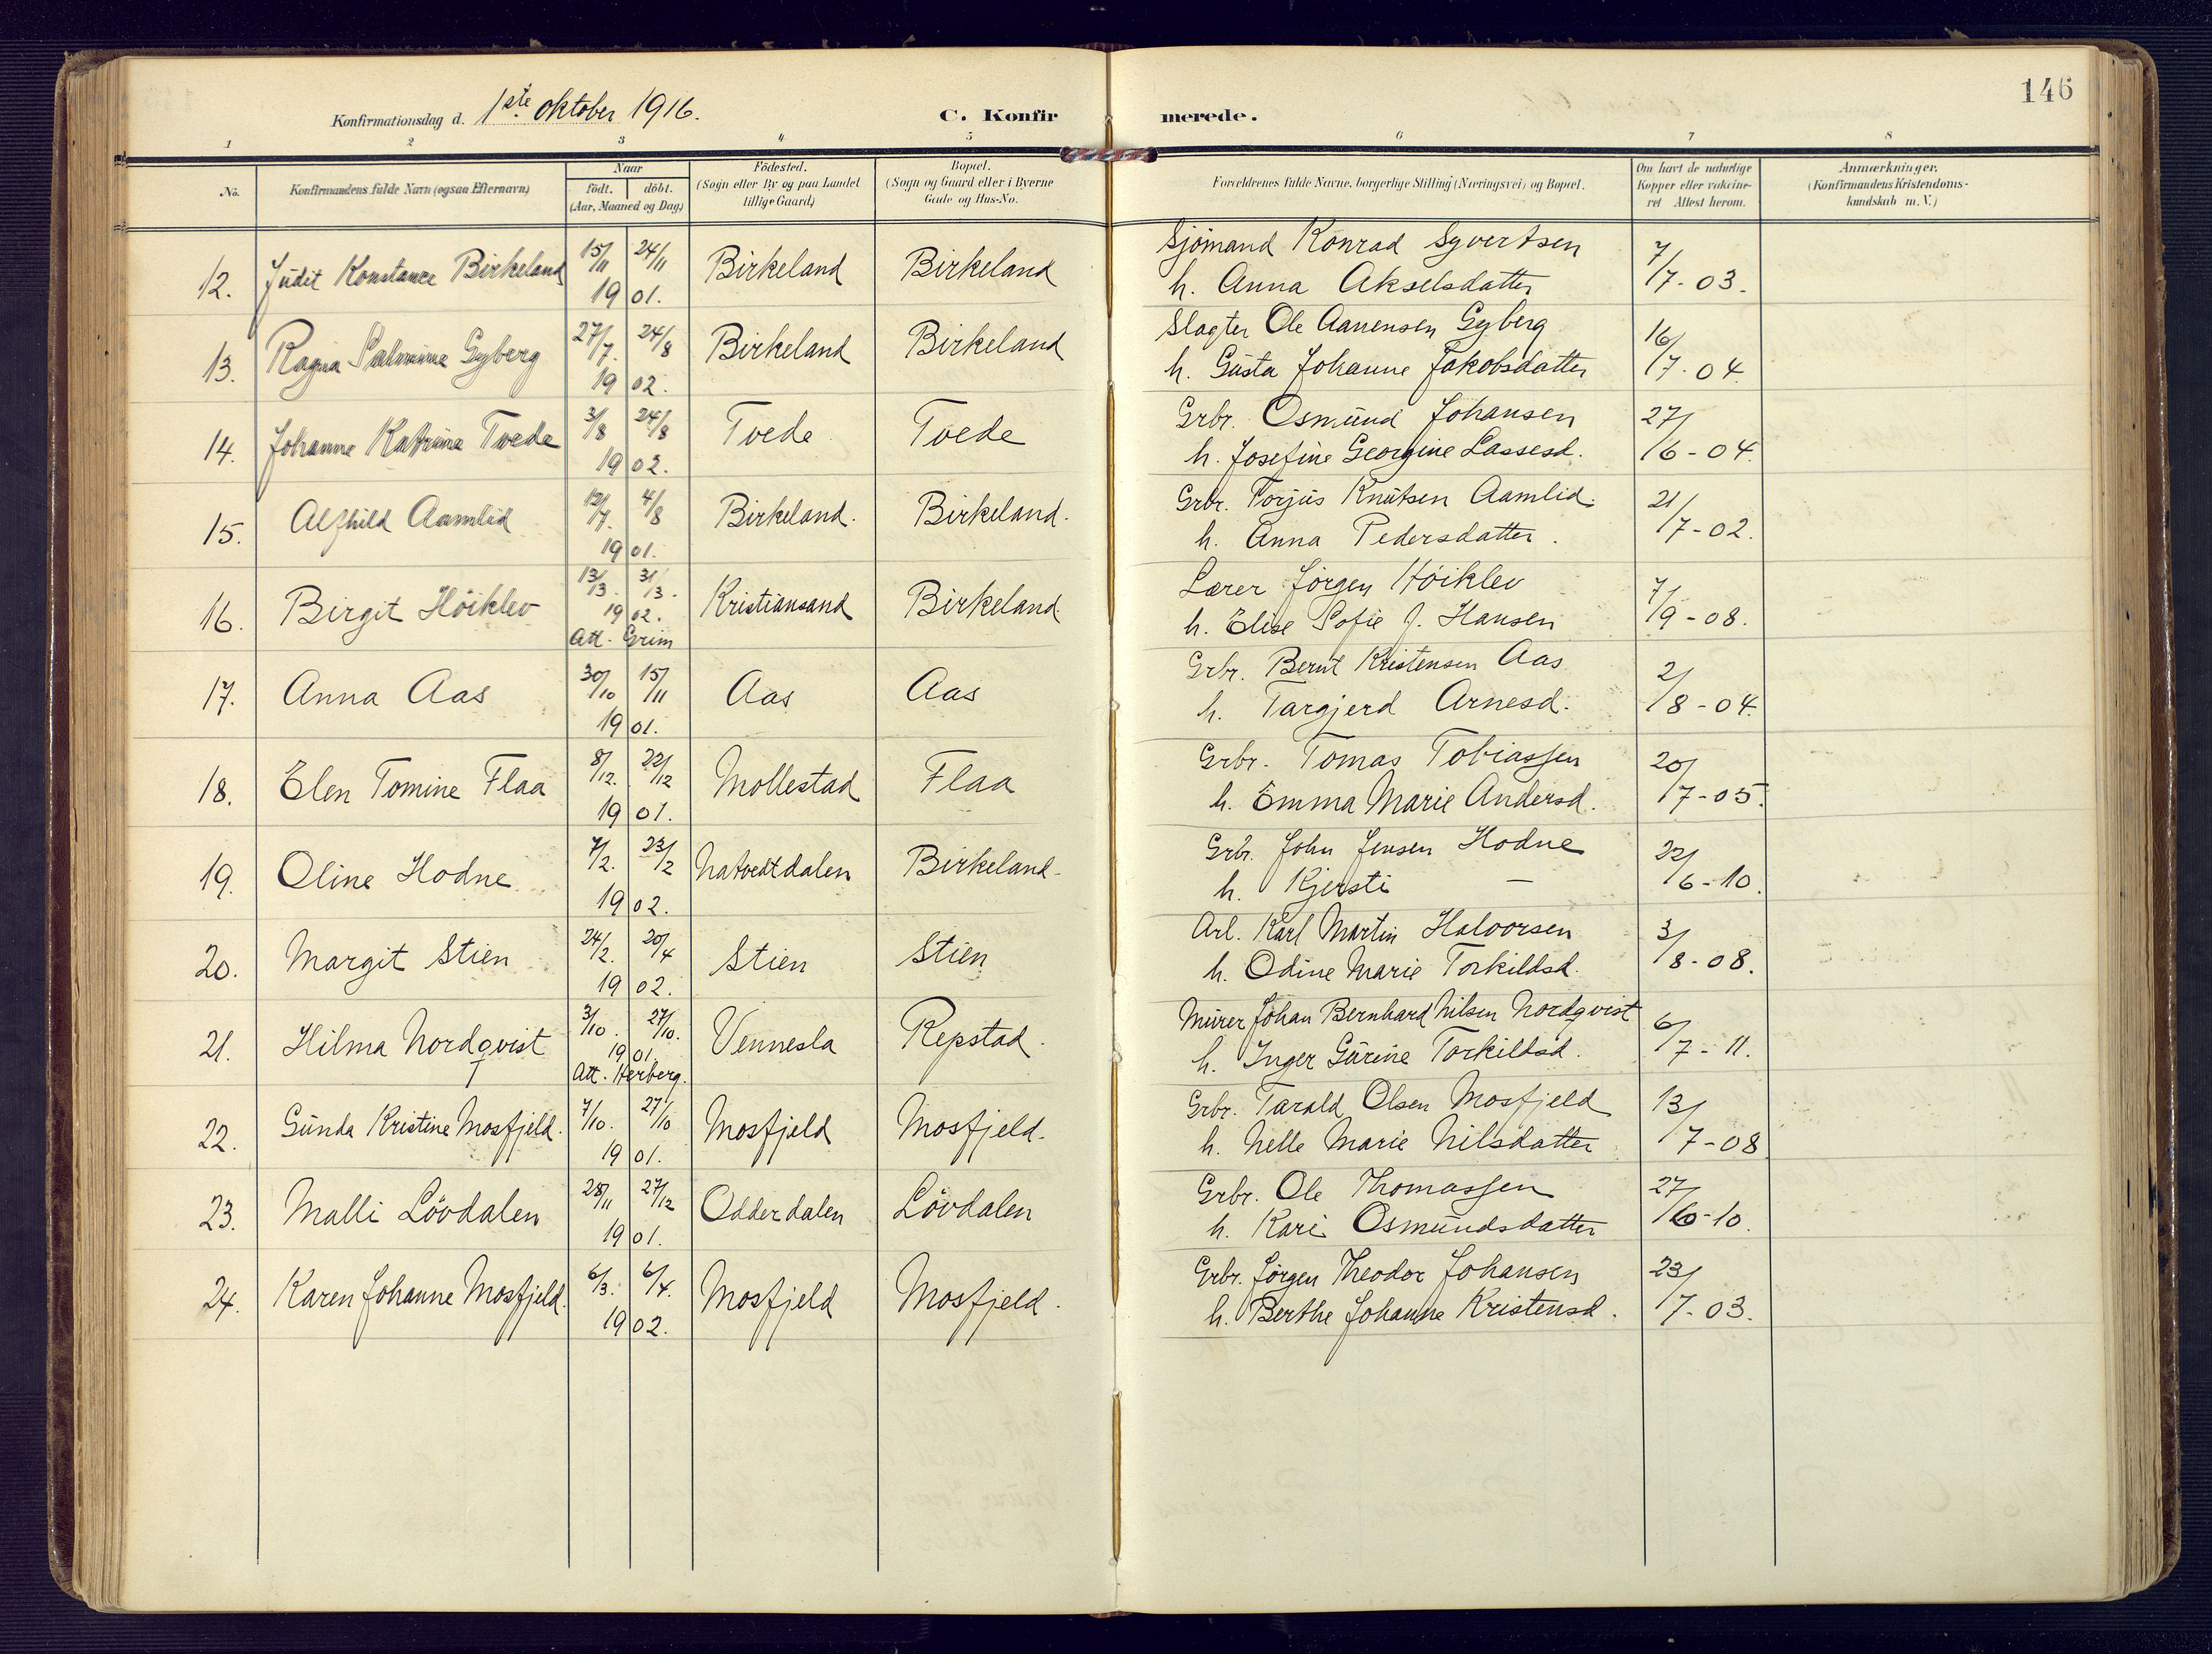 146
Konfirmationsdag d. 1ste oktober 1916.
C. Konfirmerede.
1 2 3 4 5 6 7 8
No.
Konfirmandens fulde Navn (ogsaa Efternavn)
Naar
født. døbt.
(Aar, Maaned og Dag)
Födested.
(Sogn eller By og paa Landet
tillige Gaard)
Bopæl.
(Sogn og Gaard eller i Byerne
Gade og Hus-No.
Forældrenes fulde Navne, borgerlige Stilling (Næringsvei) og Bopæl.
Om havt de naturlige
Kopper eller vakcine-
ret Attest herom.
Anmærkninger.
(Konfirmandens Kristendoms-
kundskab m. V.)
12. Judit Konstance Birkeland 15/11 24/11 1901. Birkeland Birkeland Sjömand Konrad Syvertsen
h. Anna Akselsdatter 7/7-03.
13. Ragna Salmine Gyberg 27/7. 24/8 1902. Birkeland Birkeland Slagter Ole Aanensen Gyberg
h. Gusta Johanne Jakobsdatter 16/7-04.
14. Johanne Katrine Tvede 3/8 24/8 1902. Tvede Tvede Grbr. Osmund Johansen
h. Josefine Georgine Lassesd. 27/6-04.
15. Alfhild Aamlid 12/7. 4/8 1901. Birkeland. Birkeland. Grbr. Torjus Knutsen Aamlid.
h. Anna Pedersdatter. 21/7-02.
16. Birgit Höiklev 13/3. 31/3. 1902. Kristiansand Birkeland. Lærer Jörgen Höiklev
Att. Grim
h. Elise Sofie J. Hansen 7/9-08.
17. Anna Aas 30/10 15/11 1901. Aas Aas Grbr. Bernt Kristensen Aas
h. Targjerd Arnesd. 2/8-04.
18. Elen Tomine Flaa 8/12. 22/12 1901. Mollestad Flaa Grbr. Tomas Tobiassen
h. Emma Marie Andersd. 20/7-05.
19. Oline Hodne 7/2. 23/2 1902. Natvedtdalen Birkeland. Grbr. John Jensen Hodne
h. Kjersti — 22/6-10.
20. Margit Stien 24/2. 20/4 1902. Stien Stien Arb. Karl Martin Halvorsen
h. Odine Marie Torkildsd. 3/8-08.
21. Hilma Nordqvist 3/10. 27/10. 1901. Vennesla Repstad. Murer Johan Bernhard Nilsen Nordqvist
Att. Herberg.
h. Inger Gurine Torkildsd. 6/7-11.
22. Gunda Kristine Mosfjeld. 7/10. 27/10 1901. Mosfjeld Mosfjeld. Grbr. Tarald Olsen Mosfjeld
h. Nelle Marie Nilsdatter 13/7-08
23. Malli Lövdalen 28/11 27/12 1901. Odderdalen Lövdalen Grbr. Ole Thomassen
h. Kari Osmundsdatter 27/6-10.
24. Karen Johanne Mosfjeld. 6/3. 6/4. 1902. Mosfjeld Mosfjeld. Grbr. Jörgen Theodor Johansen
h. Berthe Johanne Kristensd. 23/7-03.